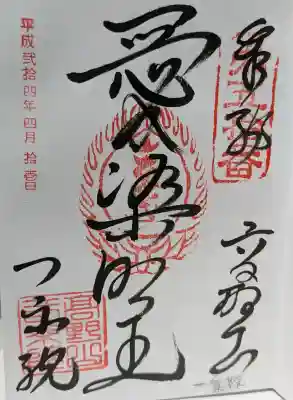 奉拝
高野山
愛染明王
平成弐拾四年四月拾壹日
一乗院
高野山
一乗院